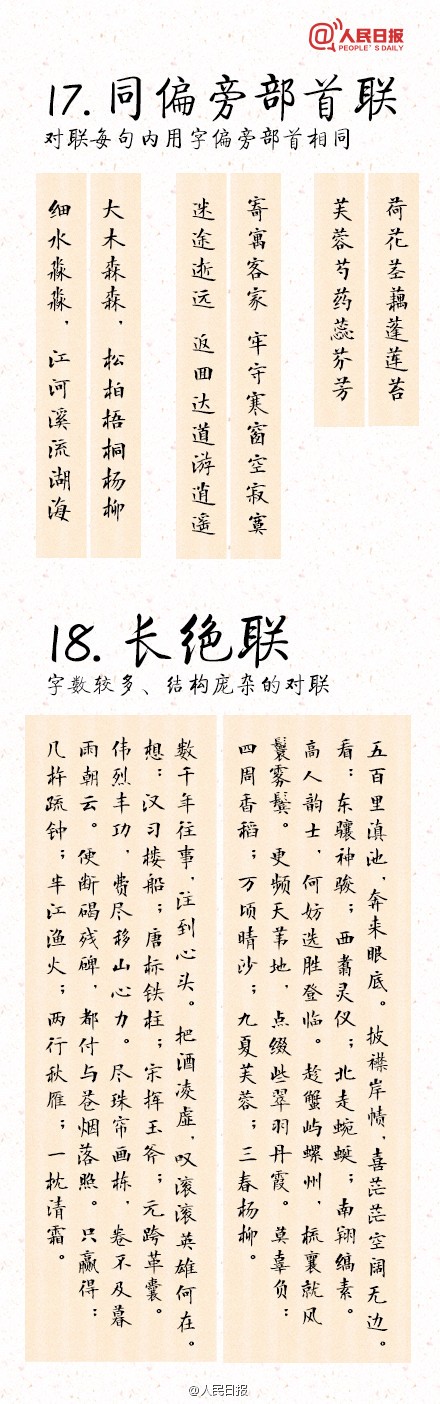 @人民日报
PEOPLE'S DAILY
17. 同偏旁部首联
对联每句内用字偏旁部首相同
荷花茎藕蓬莲苔
芙蓉芍药蕊芬芳
寄寓客家 牢守寒窗空寂寞
迷途逝远 返回达道游逍遥
大木森森，松柏梧桐杨柳
细水淼淼，江河溪流湖海
18. 长绝联
字数较多、结构庞杂的对联
五百里滇池，奔来眼底。披襟岸帻，喜茫茫空阔无边。
看：东骧神骏；西翥灵仪；北走蜿蜒；南翔缟素。
高人韵士，何妨选胜登临。趁蟹屿螺州，梳裹就风
鬟雾鬓。更频天苇地，点缀些翠羽丹霞。莫辜负：
四周香稻；万顷晴沙；九夏芙蓉；三春杨柳。
数千年往事，注到心头。把酒凌虚，叹滚滚英雄何在。
想：汉习楼船；唐标铁柱；宋挥玉斧；元跨革囊。
伟烈丰功，费尽移山心力。尽珠帘画栋，卷不及暮
雨朝云。便断碣残碑，都付与苍烟落照。只赢得：
几杵疏钟；半江渔火；两行秋雁；一枕清霜。
@人民日报